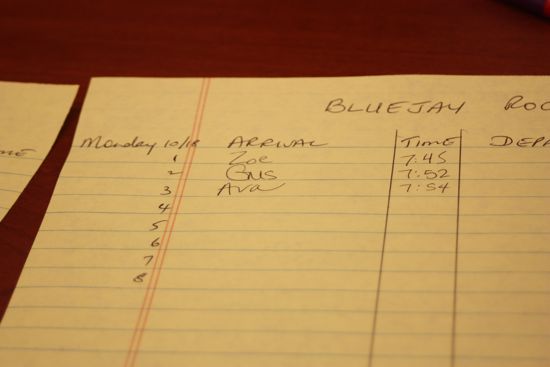 BLUEJAY ROO
Monday 10/18 ARRIVAL TIME DEPA
1 Zoe 7:45
2 Gus 7:52
3 Ava 7:54
4
5
6
7
8